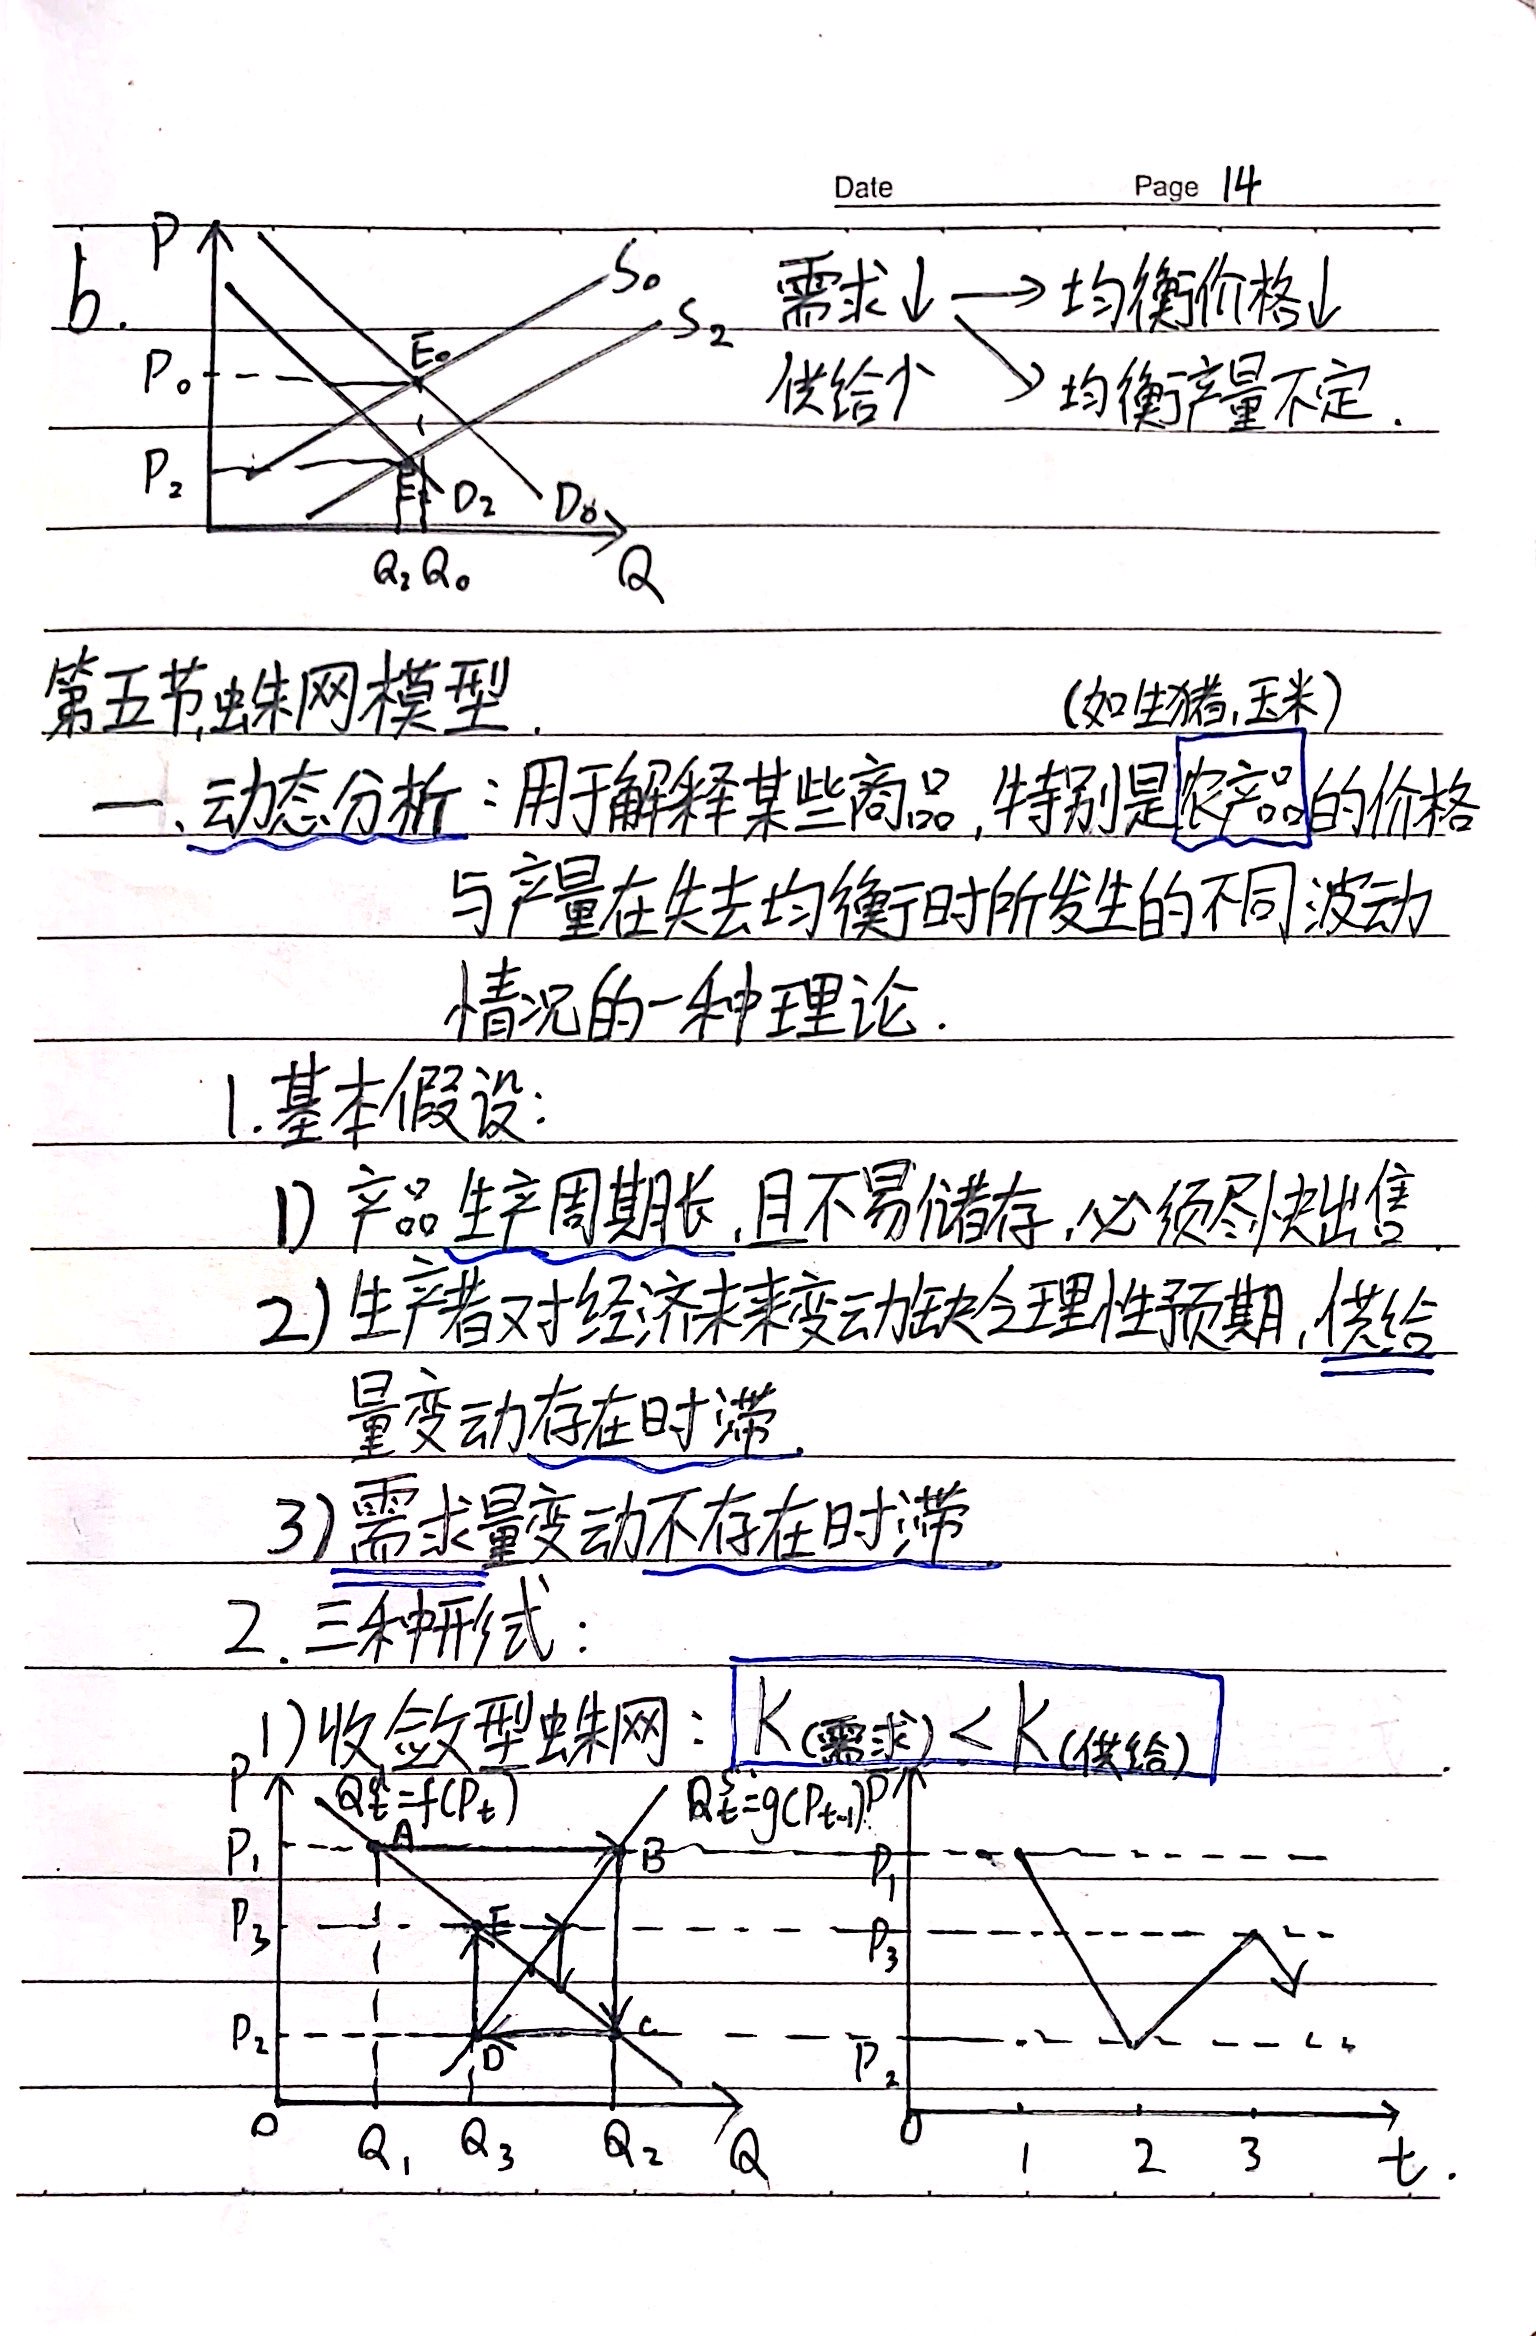 Date Page 14
b.
P
S₀
S₂
E₀
P₀
P₂
E₂
D₂
D₀
Q₂ Q₀ Q
需求↓ → 均衡价格↓
供给↑ ↘ 均衡产量不定.
第五节 蛛网模型.
(如生猪,玉米)
一、动态分析:用于解释某些商品,特别是农产品的价格
与产量在失去均衡时所发生的不同波动
情况的一种理论.
1.基本假设:
1) 产品生产周期长,且不易储存,必须尽快出售
2) 生产者对经济未来变动缺乏理性预期,供给
量变动存在时滞.
3) 需求量变动不存在时滞
2.三种形式:
1) 收敛型蛛网: K(需求) < K(供给)
P Qᵈₜ=f(Pₜ) Qˢₜ=g(Pₜ₋₁)
P₁ A B
P₃ E
P₂ D C
O Q₁ Q₃ Q₂ Q
P
P₁
P₃
P₂
O 1 2 3 t.